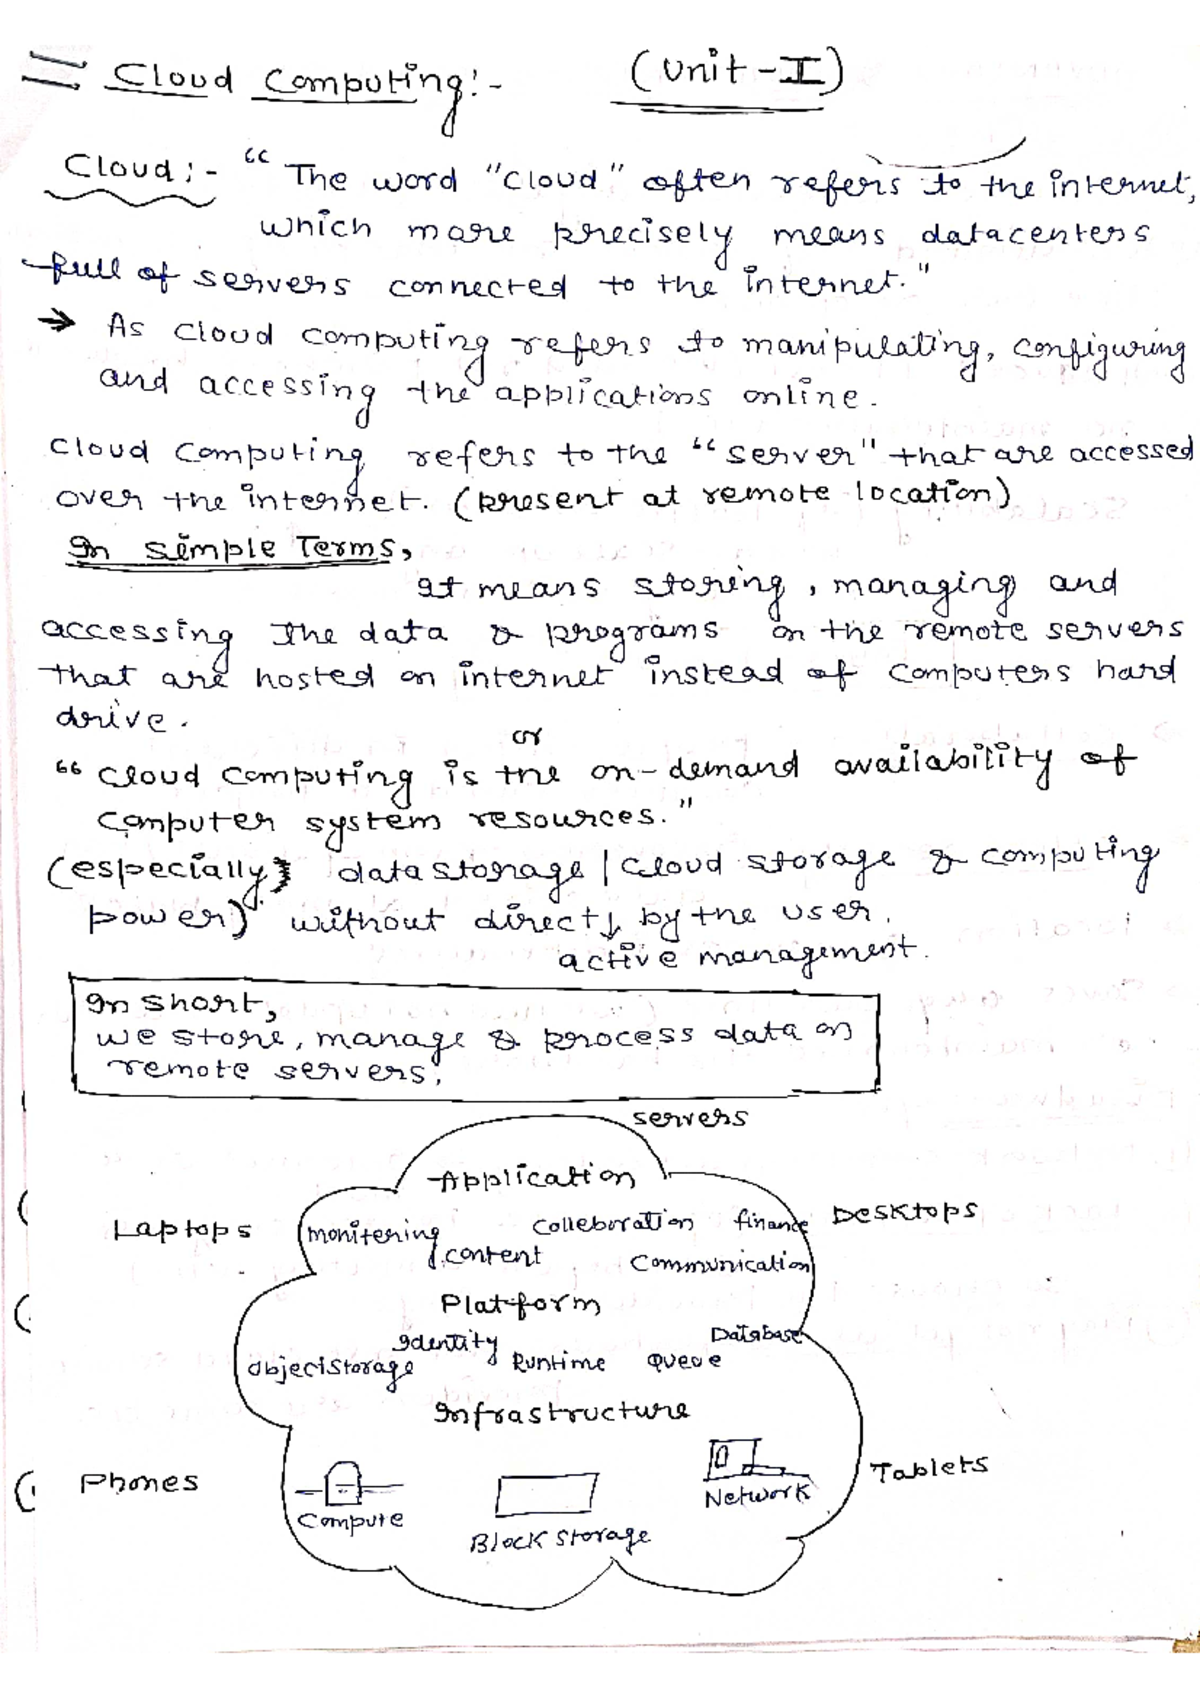 Cloud Computing:- (Unit-I)
Cloud:- "The word "cloud" often refers to the internet,
which more precisely means datacenters
full of servers connected to the internet."
→ As cloud computing refers to manipulating, configuring
and accessing the applications online.
Cloud Computing refers to the "server" that are accessed
over the internet. (present at remote location)
In Simple Terms,
It means storing, managing and
accessing the data & programs on the remote servers
that are hosted on internet instead of computers hard
drive.
or
"Cloud computing is the on-demand availability of
computer system resources."
(especially data storage / cloud storage & computing
power) without direct by the user.
active management.
In short,
we store, manage & process data on
remote servers.
servers
Application
Laptops monitering colleboration finance Desktops
content communication
Platform
Identity Database
Object Storage Runtime Queue
Infrastructure
Phones Tablets
Compute Block Storage Network